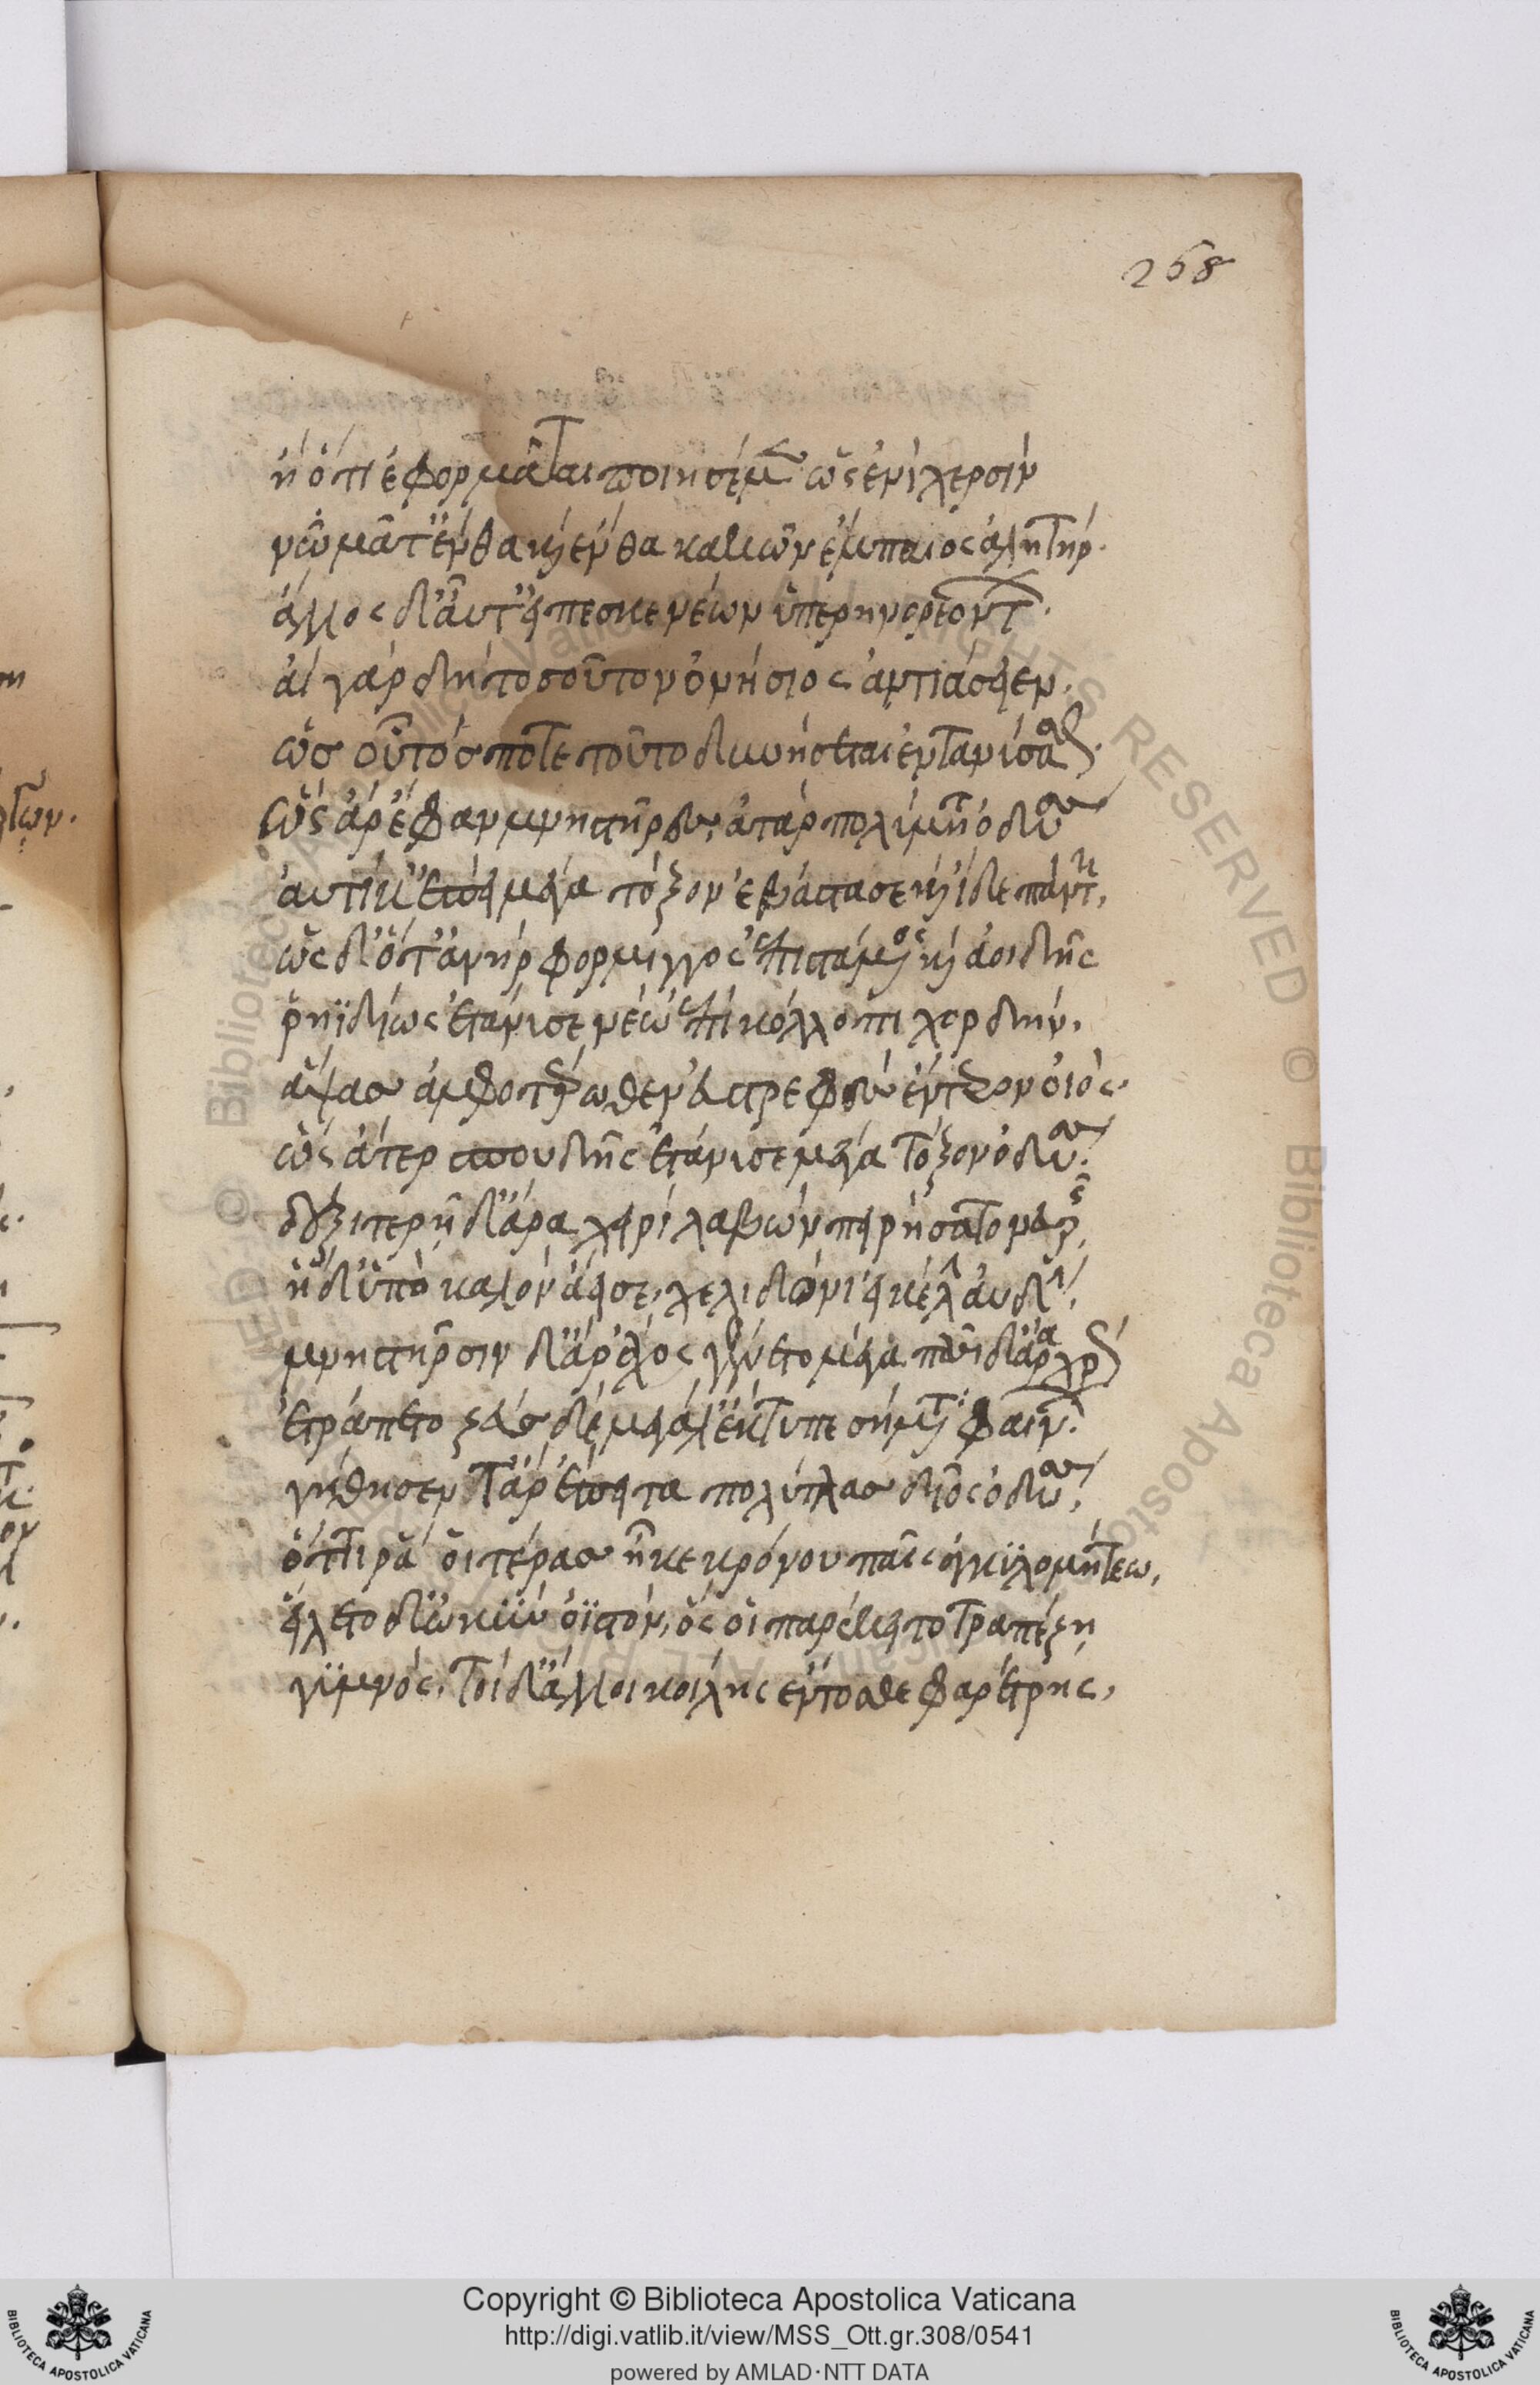 268
ἢ ὅτι ἐφορμᾶται ποιησέμεν ὡς ἐνὶ χερσὶν
νωμᾶτ' ἔνθα καὶ ἔνθα κακῶν ἔμπαιος ἀλητήρ.
ἄλλος δ' αὖτ' εἴπεσκε νέων ὑπερηνορεόντων.
αἲ γὰρ δὴ τοσοῦτον ὀνήσιος ἀντιάσειεν.
ὡς οὗτός ποτε τοῦτο δυνήσεται ἐντανύσασθαι.
ὣς ἄρ' ἔφαν μνηστῆρες, ἀτὰρ πολύμητις ὀδυσσεὺς
αὐτίκ' ἐπεὶ μέγα τόξον ἐβάστασε καὶ ἴδε πάντη,
ὡς δ' ὅτ' ἀνὴρ φόρμιγγος ἐπιστάμενος καὶ ἀοιδῆς
ῥηϊδίως ἐτάνυσε νέῳ ἐπὶ κόλλοπι χορδὴν.
ἅψας ἀμφοτέρωθεν ἐϋστρεφὲς ἔντερον οἰός.
ὣς ἄτερ σπουδῆς ἐτάνυσε μέγα τόξον ὀδυσσεύς.
δεξιτερῇ δ' ἄρα χειρὶ λαβὼν πειρήσατο νευρῆς,
ἡ δ' ὑπὸ καλὸν ἄεισε, χελιδόνι εἰκέλη αὐδήν,
μνηστῆρσιν δ' ἄρ' ἄχος γένετο μέγα. πᾶσι δ' ἄρα χρὼς
ἐτράπετο ζεὺς δὲ μεγάλ' ἔκτυπε σήματα φαίνων.
γήθησεν τ' ἄρ' ἔπειτα πολύτλας δῖος ὀδυσσεύς,
ὅττι ῥά οἱ τέρας ἧκε κρόνου παῖς ἀγκυλομήτεω,
εἵλετο δ' ὠκὺν ὀϊστὸν, ὅς οἱ παρέκειτο τραπέζῃ
γυμνός, τοὶ δ' ἄλλοι κοίλης ἔντοσθε φαρέτρης,
Copyright © Biblioteca Apostolica Vaticana
http://digi.vatlib.it/view/MSS_Ott.gr.308/0541
powered by AMLAD·NTT DATA